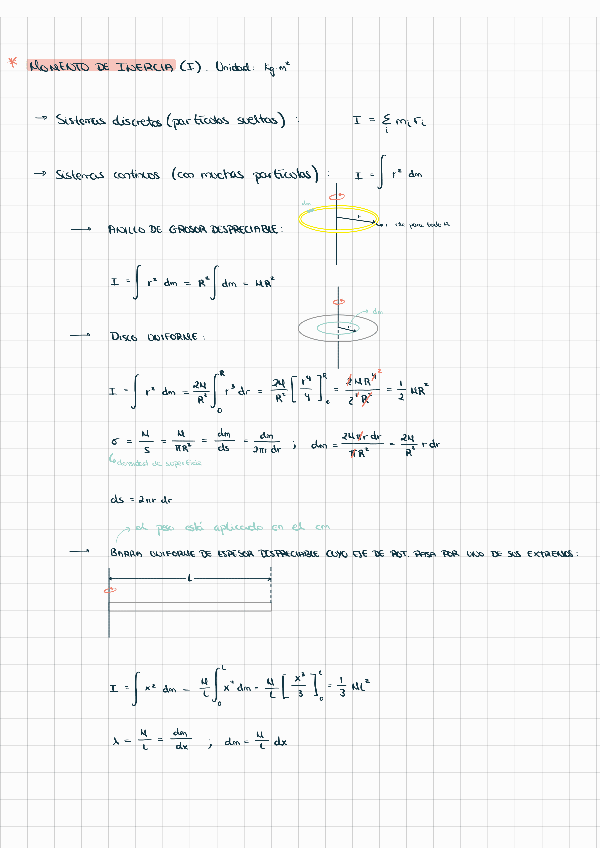 * MOMENTO DE INERCIA (I). Unidad: kg·m²
→ Sistemas discretos (partículas sueltas): I = Σ_i m_i r_i
→ Sistemas continuos (con muchas partículas): I = ∫ r² dm
dm
→ ANILLO DE GROSOR DESPRECIABLE:
r
r cte para todo M
I = ∫ r² dm = R² ∫ dm = MR²
dm
r
→ DISCO UNIFORME:
I = ∫ r² dm = 2M/R² ∫₀^R r³ dr = 2M/R² [r⁴/4]₀^R = 2MR⁴/4R² = 1/2 MR²
σ = M/S = M/πR² = dm/ds = dm/2πr dr ; dm = 2Mπr dr/πR² = 2M/R² r dr
densidad de superficie
ds = 2πr dr
el peso está aplicado en el cm
→ BARRA UNIFORME DE ESPESOR DESPRECIABLE CUYO EJE DE ROT. PASA POR UNO DE SUS EXTREMOS:
L
I = ∫ x² dm = M/L ∫₀^L x² dm = M/L [x³/3]₀^L = 1/3 ML²
λ = M/L = dm/dx ; dm = M/L dx